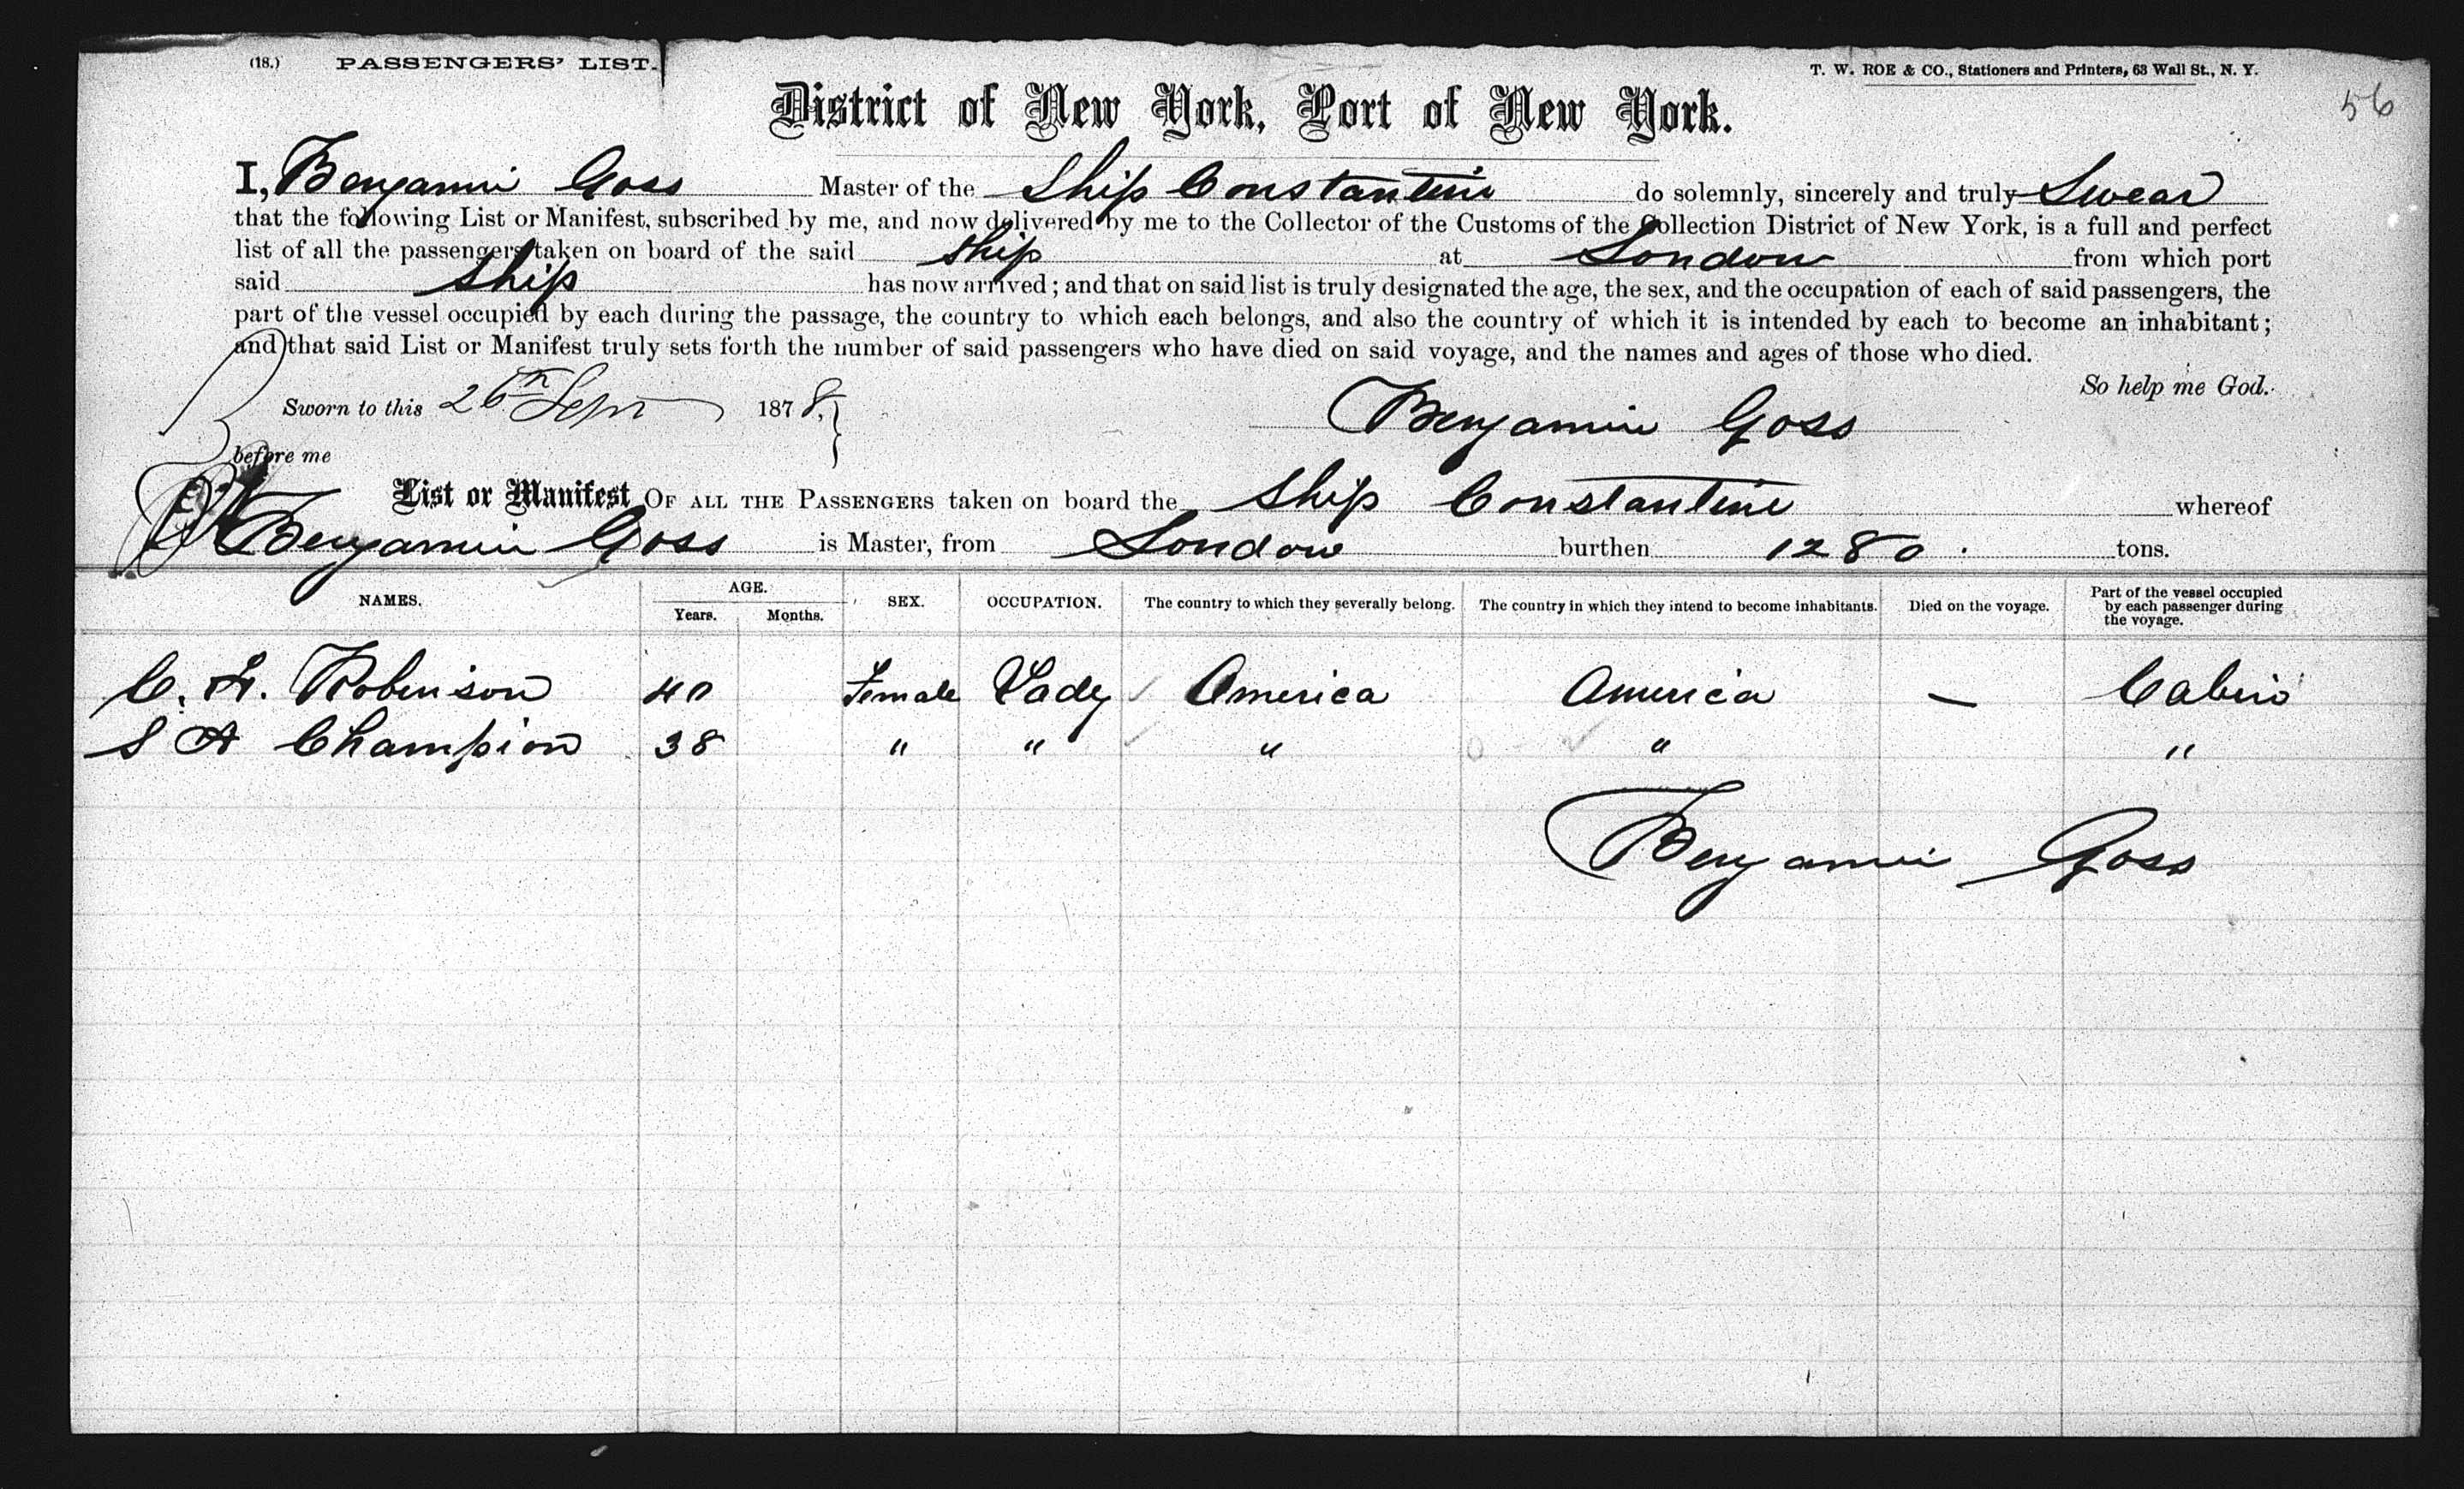 (18.) PASSENGERS' LIST.
T. W. ROE & CO., Stationers and Printers, 63 Wall St., N. Y.
56
District of New York, Port of New York.
I, Benjamin Goss Master of the Ship Constantine do solemnly, sincerely and truly Swear
that the following List or Manifest, subscribed by me, and now delivered by me to the Collector of the Customs of the Collection District of New York, is a full and perfect
list of all the passengers taken on board of the said ship at London from which port
said ship has now arrived; and that on said list is truly designated the age, the sex, and the occupation of each of said passengers, the
part of the vessel occupied by each during the passage, the country to which each belongs, and also the country of which it is intended by each to become an inhabitant;
and that said List or Manifest truly sets forth the number of said passengers who have died on said voyage, and the names and ages of those who died.
So help me God.
Sworn to this 26th Sepr 1878.
Benjamin Goss
before me
List or Manifest OF ALL THE PASSENGERS taken on board the Ship Constantine whereof
Benjamin Goss is Master, from London burthen 1280. tons.
NAMES. AGE. Years. Months. SEX. OCCUPATION. The country to which they severally belong. The country in which they intend to become inhabitants. Died on the voyage. Part of the vessel occupied by each passenger during the voyage.
Robinson 40 Female Lady America America — Cabin
S A Champion 38 " " " " "
Benjamin Goss